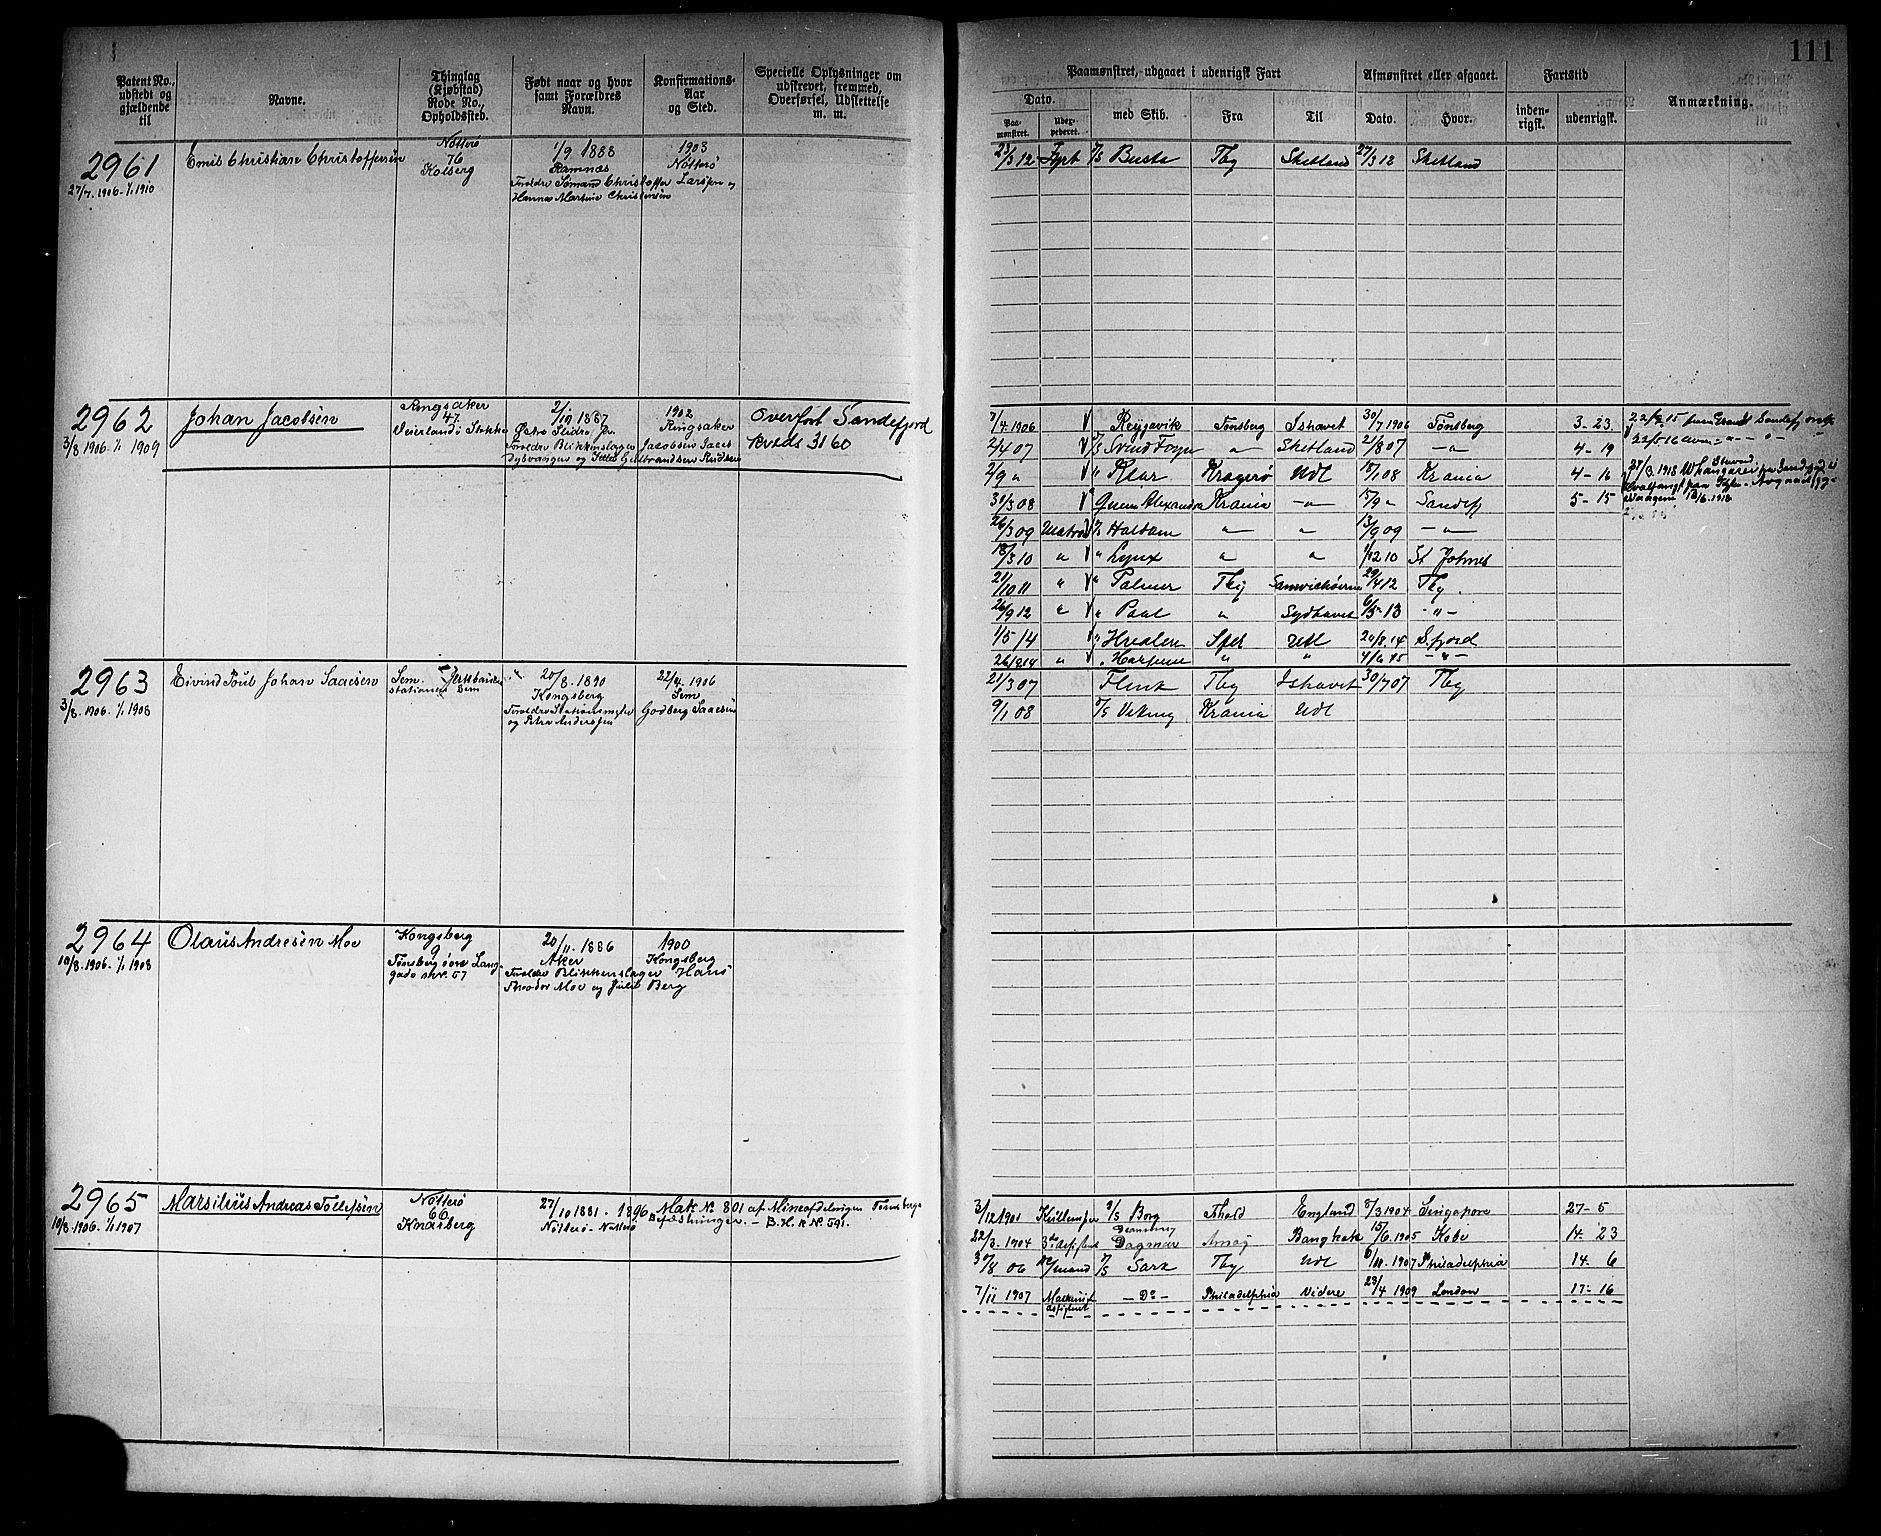 111
Patent No., udstedt og gjældende til
Navne.
Thinglag (Kjøbstad) Rode No., Opholdssted.
Født naar og hvor samt Forældres Navn.
Konfirmations-Aar og Sted.
Specielle Oplysninger om udstrevet, fremmed, Overførsel, Udslettelse m. m.
Paamønstret, udgaaet i udenrigsk Fart
Afmønstret eller afgaaet.
Fartstid
Anmærkning.
Dato.
Paa-mønstret.
med Skib.
Fra
Til
Dato.
Hvor.
inden-rigsk.
udenrigsk.
2961
27/7. 1906. - 1/1 1910
Emil Christian Christoffersen
Nøtterø
76
Kolberg
1/9 1888
Ramnæs
Forældre Sømand Christoffer Larsen og
Hanna Martine Christensen
1903
Nøtterø
23/3 12 Fyrb. Busta Tbg Shetland 27/3 12 Shetland
2962
3/8 1906. 1/1 1909
Johan Jacobsen
Ringsaker
47
Veierland i Stokke
2/10 1887
Østre Slidre
Forældre Blikkenslager Jacobsen
1902
Ringsaker
Overført Sandefjord
Kreds 3160
7/4. 1906 Reyjavik Tønsberg Ishavet 30/7 1906 Tønsberg 3-23
2/4 07 Svend Foyn " Shetland 2/8 07 -"- 4-19
2/9 " Klar Kragerø Udl 18/1 08 Krania 4-16
31/3 08 Queen Alexandra Krania -"- 15/9 " Sandefj 5-15
26/3 09 Matros Haldane " " 13/9 09 -"-
18/3 10 " Lynx " " 1/12 10 St Johnes
21/10 11 " Palmer Tbg 29/4 12 Tbg.
26/9 12 " Paal " Sydhavet 6/5 13 -"-
1/5 14 Hvalen Sfd Udl 20/8. 14 S.fjord
26/8 14 " " " 4/6 15 -"-
2963
3/8. 1906. 1/1 1908
Eivind Poul Johan Isaacsen
Sem. Jernbane
stationen Sem
20/8. 1890
Kongsberg
Forældre Stationsmester
og Petra Andersen
22/4. 1906
Sem
Godberg Isaacsen
21/3 07 Flink Tbg Ishavet 30/7 07 Tbg
9/1 08 Viking Krania Udl
2964
10/8. 1906. 1/1 1908
Olaus Andresen Moe
Kongsberg
9
Tønsberg øvre Lang-
gade nr. 57
20/11. 1886
Aker
Forældre Blikkenslager Hans
Theodor Moe og Julie Berg
1900
Kongsberg
2965
10/8. 1906. 1/1 1907
Marsilius Andreas Tollefsen
Nøtterø
66
Knarberg
27/10 1881. 1896
Nøtterø. Nøtterø
Matr. N. 801 af Mineafdelingen Tønsbergs
Befæstninger. - B. H. R. No. 591.
3/12 1901 Kullemper S/S Borg Fshald England 8/3 1904 Singapore 27-5
22/3. 1904 Dronning
Dagmar Amoy Bangkok 15/6. 1905 Kobe 14. 23
30/8 06 Sark Tbg Udl 6/11. 1907 Philadelphia 14. 6
7/11 1907 Maskinist
assistent -Do- Philadelphia Videre 23/4 1909 London 17-16